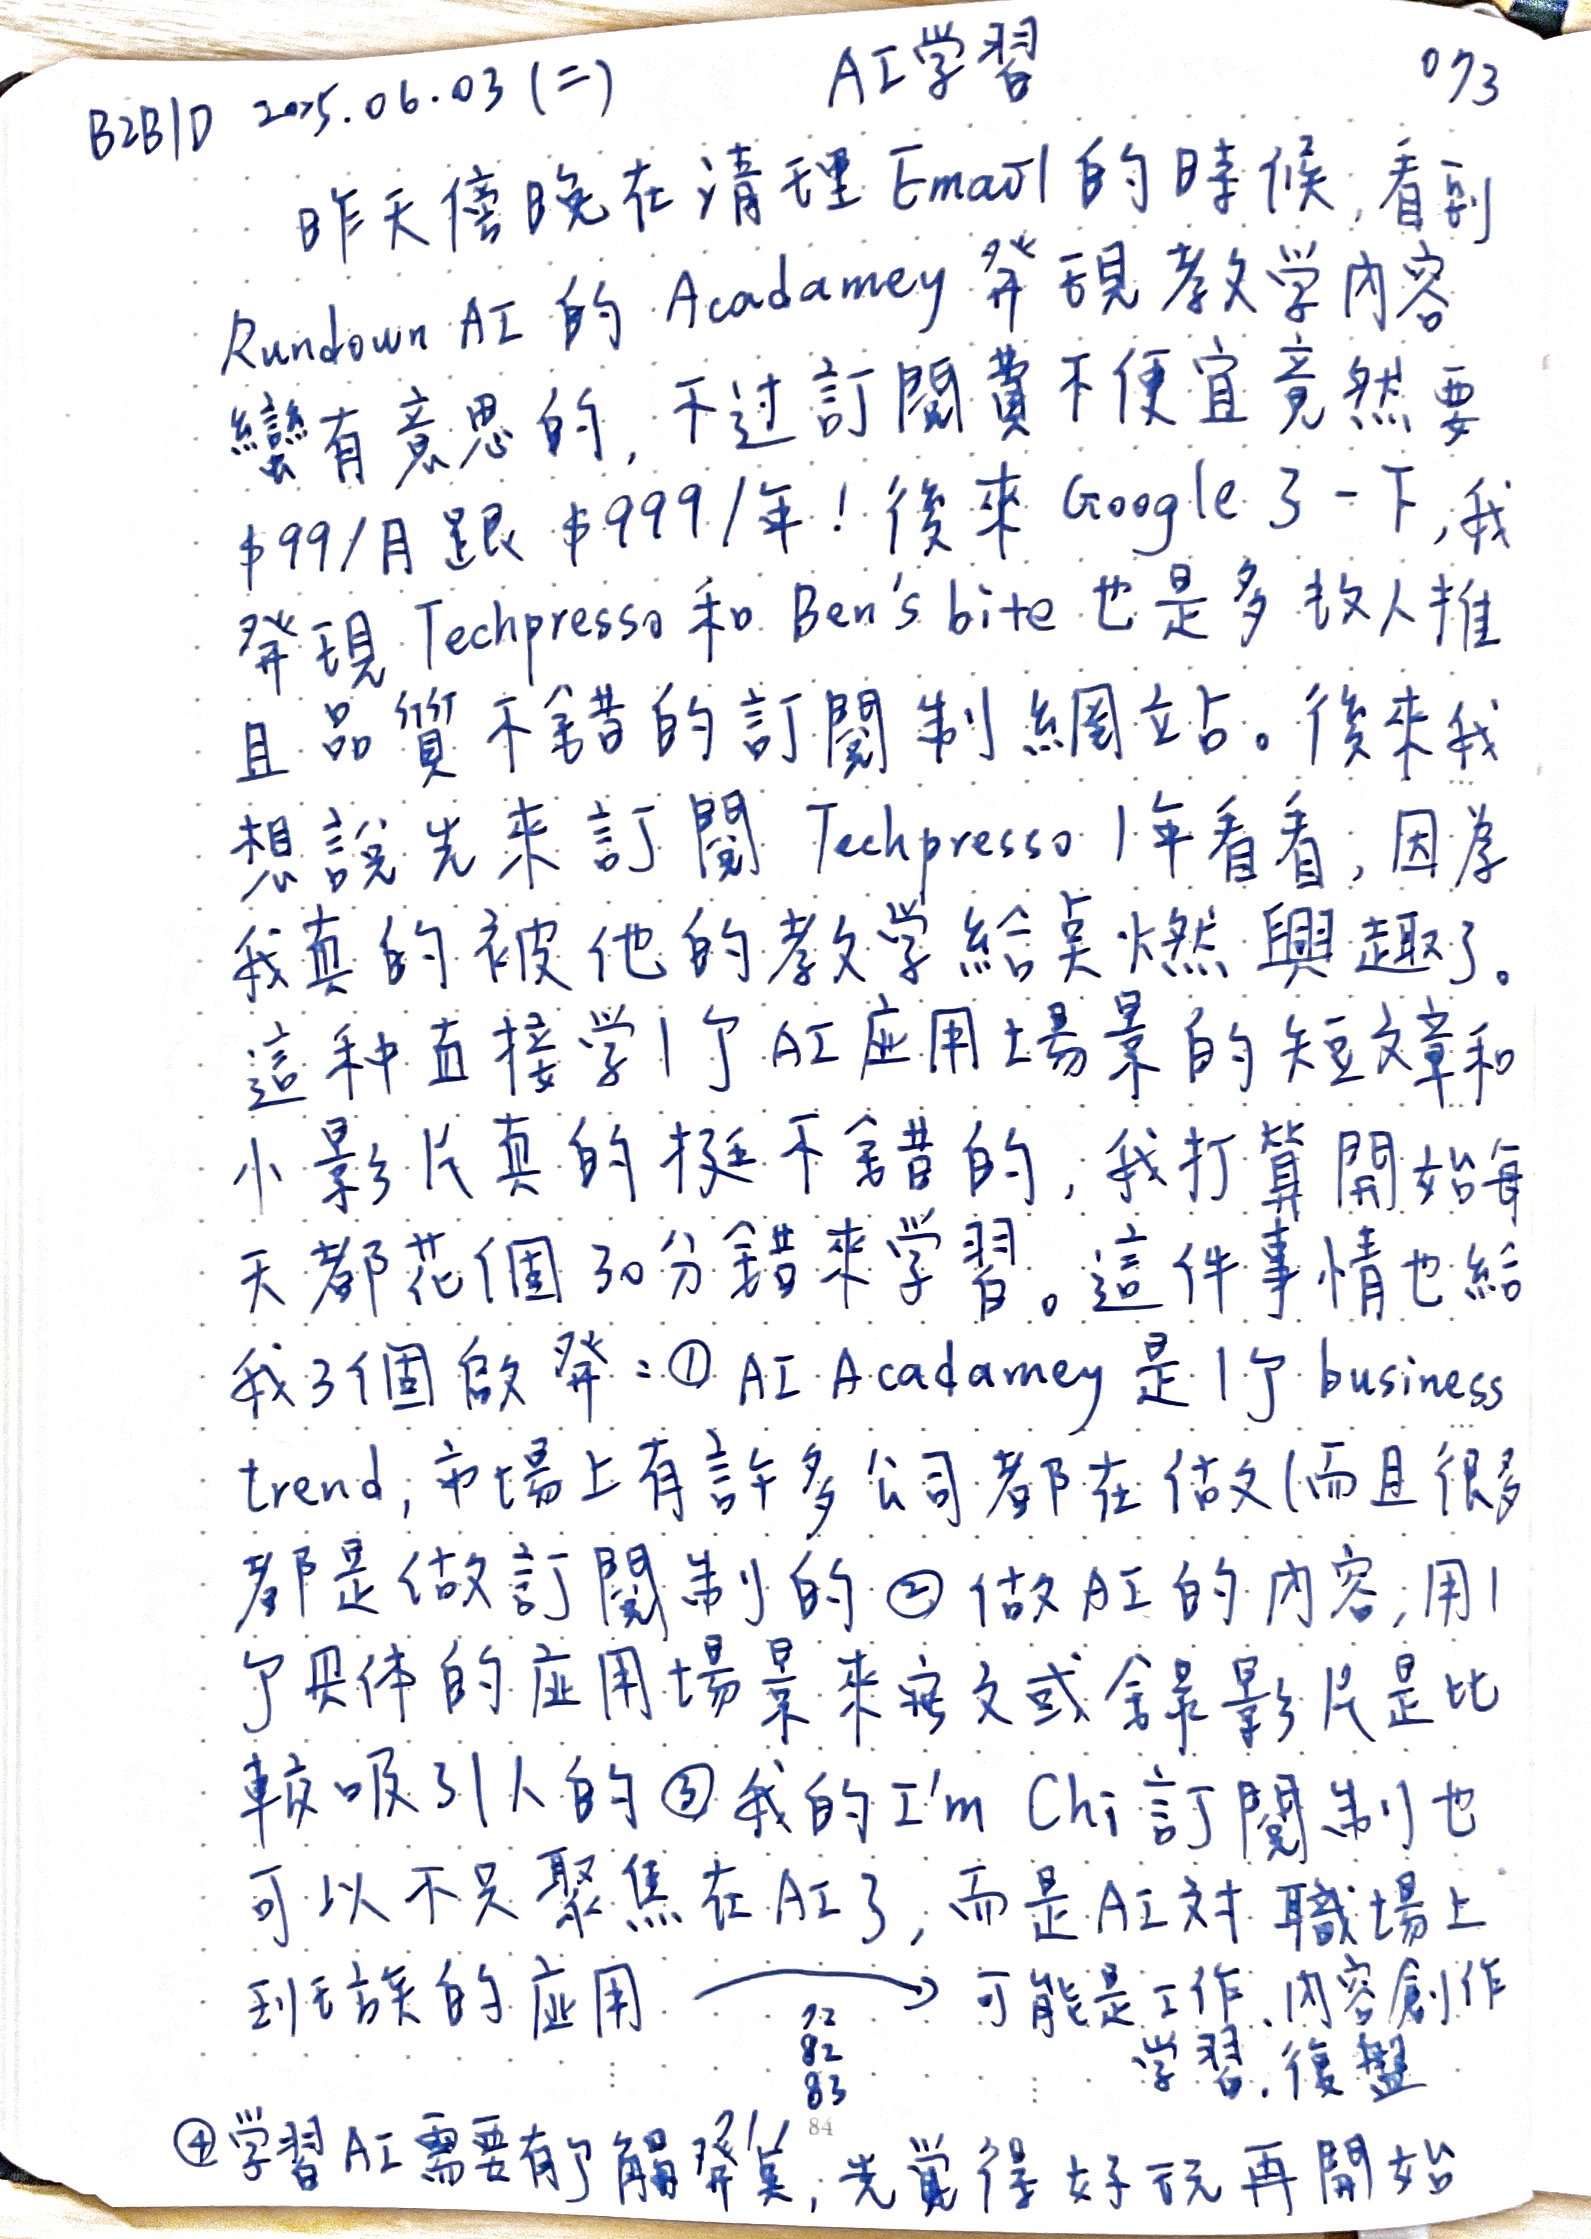 B2B1D 2025.06.03 (二) AI学習 073
昨天傍晚在清理 Email 的時候, 看到
Rundown AI 的 Acadamey 発現教学内容
蠻有意思的, 不过訂閱費不便宜竟然要
$99/月跟 $999/年! 後來 Google 了一下, 我
発現 Techpresso 和 Ben's bite 也是多数人推
且品質不錯的訂閱制網站。後來我
想說先來訂閱 Techpresso 1年看看, 因為
我真的被他的教学給点燃興趣了。
這种直接学1个AI应用場景的短文章和
小影片真的挺不錯的, 我打算開始每
天都花個30分錯來学習。這件事情也給
我3個啟発: ① AI Acadamey 是1个 business
trend, 市場上有許多公司都在做 (而且很多
都是做訂閱制的 ② 做AI的内容, 用1
个具体的应用場景來寫文或錄影片是比
較吸引人的 ③ 我的 I'm Chi 訂閱制也
可以不只聚焦在AI了, 而是AI对職場上
到的应用 → 可能是工作、内容創作
72
82 学習. 復盤
83
84
④ 学習AI需要有个觸発点, 先覚得好玩再開始